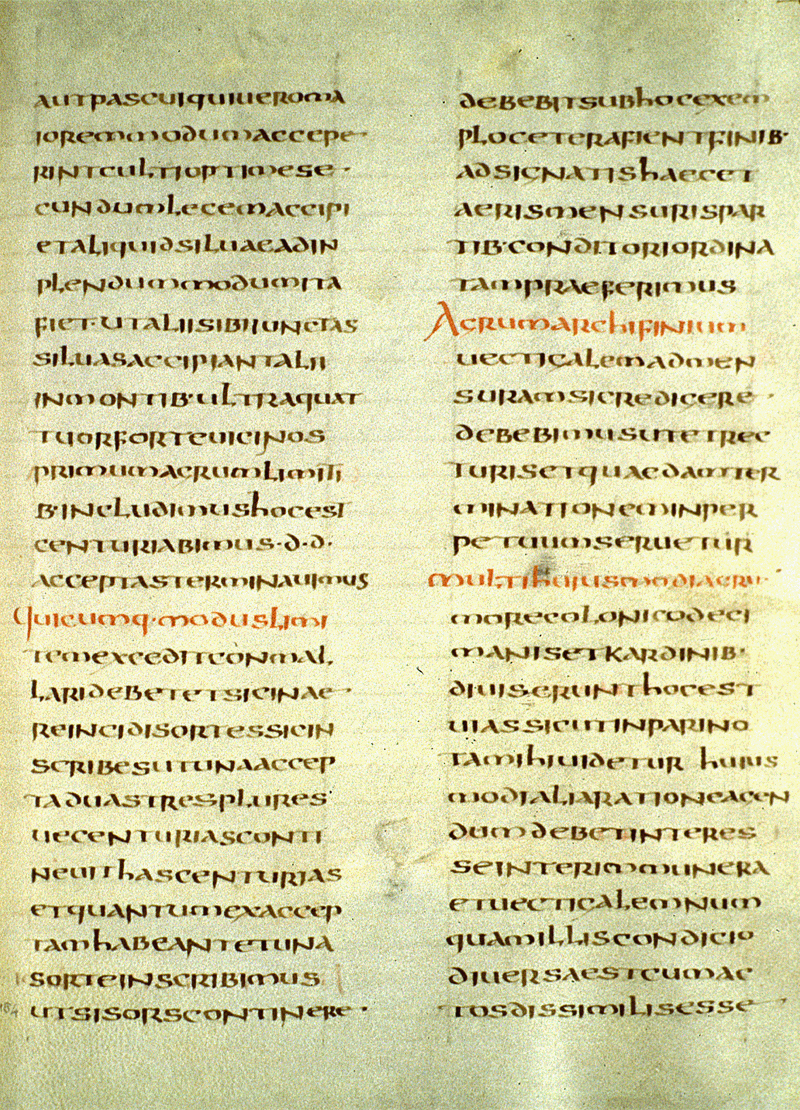 AUTPASCUIQUIUEROMA
IOREMMODUMACCEPE
RINTCULTIOPTIMESE·
CUNDUMLECEMACCIPI
ETALIQUIDSILUAEADIN
PLENDUMMODUMITA
FIET·UTALIISIBIIUNCTAS
SILUASACCIPIANTALII
INMONTIB·ULTRAQUAT
TUORFORTEUICINOS
PRIMUMACRUMLIMITI
B·INCLUDIMUSHOCEST
CENTURIABIMUS·D·D·
ACCEPTASTERMINAUIMUS
QUICUMQ·MODUSLIMI
TEMEXCEDITCONMAL
LARIDEBETETSICINAE·
REINCIDISORTESSICIN
SCRIBESUTUNAACCEP
TADUASTRESPLURES
UECENTURIASCONTI
NEUITHASCENTURIAS
ETQUANTUMEXACCEP
TAMHABEANTETUNA
SORTEINSCRIBIMUS
UTSISORSCONTINERE·
DEBEBITSUBHOCEXEM
PLOCETERAFIENTFINIB·
ADSIGNATISHAECET
AERISMENSURISPAR
TIB·CONDITORIORDINA
TAMPRAEFERIMUS
AGRUMARCHIFINIUM
UECTICALEMADMEN
SURAMSICREDICERE·
DEBEBIMUSUTETREC
TURISETQUAEDAMTER
MINATIONEMINPER
PETUUMSERUETUR
MULTIHUIUSMODIACRU
MORECOLONICODECI
MANISETKARDINIB·
DIUISERUNTHOCEST
UIASSICUTINPARINO
TAMIHIUIDETUR HUIUS
MODIALIARATIONEACEN
DUMDEBETINTERES
SEINTERIMMUNERA
ETUECTICALEMNUM
QUAMILLISCONDICIO
DIUERSAESTCUMAC
TOSDISSIMILISESSE